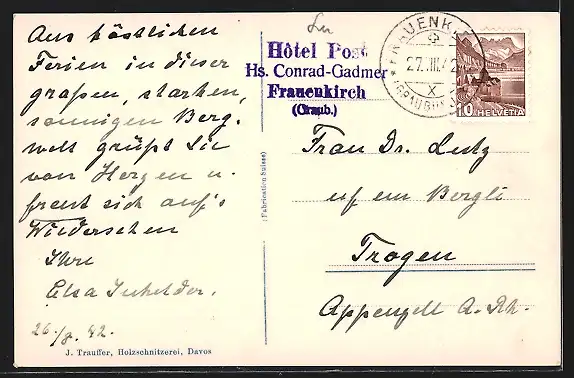 Aus köstlichen
Ferien in dieser
grossen, starken,
sonnigen Berg-
welt grüsst Sie
von Herzen u.
freut sich auf's
Wiedersehen
Ihre
Elsa
26./ 42.
J. Trauffer, Holzschnitzerei, Davos
(Fabrication Suisse)
Hôtel Post
Hs. Conrad-Gadmer
Frauenkirch
(Graub.)
FRAUENKI
27. III. 42
X
(GRAUB
10 HELVETIA
Frau Dr. Lutz
uf em Bergli
Trogen
Appenzell A. Rh.